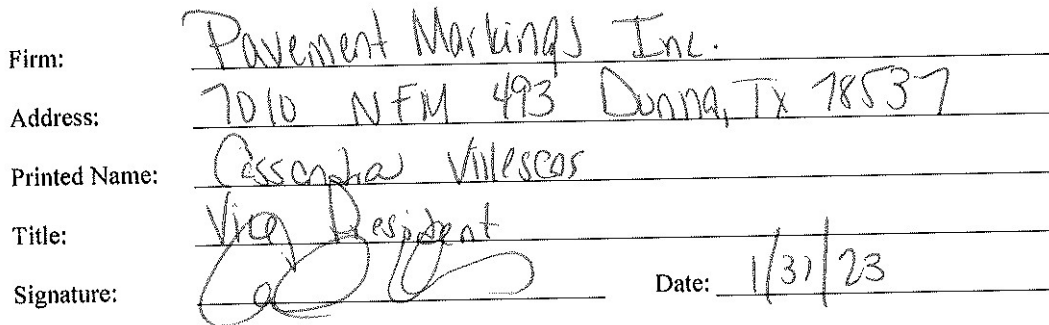 Firm: Pavement Markings Inc.
Address: 7010 N FM 493 Donna, Tx 78537
Printed Name: Cassandra Villescas
Title: Vice President
Signature:
Date: 1/31/23